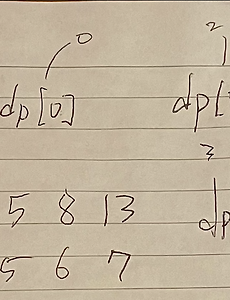 0 2
dp[0] dp[
3
5 8 13 dp
5 6 7